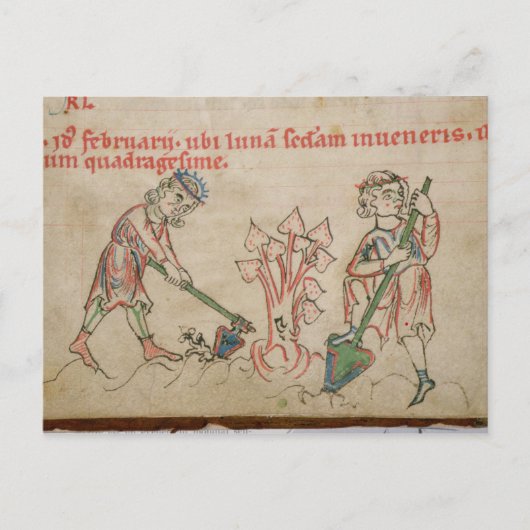 KL
. id februarij. ubi lunā scdam inueneris.
um quadragesime.